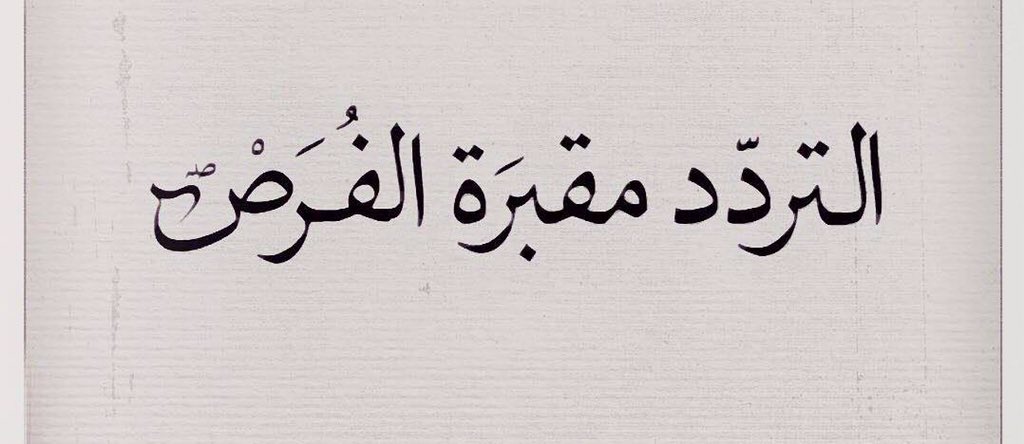 التردّد مقبرَة الفُرَصْ